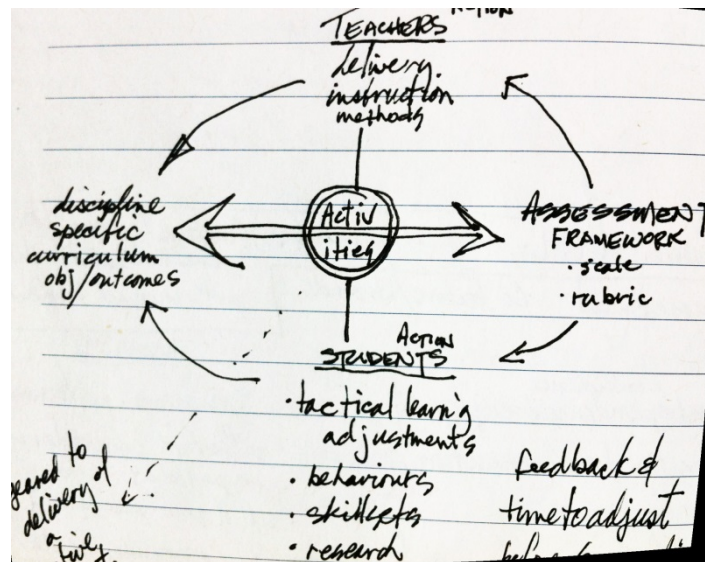 ACTION
TEACHERS
delivery
instruction
methods
discipline
specific
curriculum
obj/outcomes
Activ
ities
ASSESSMENT
FRAMEWORK
· scale
· rubric
ACTION
STUDENTS
· tactical learning
adjustments
· behaviours
· skillsets
· research
geared to
delivery of
a
feedback &
time to adjust